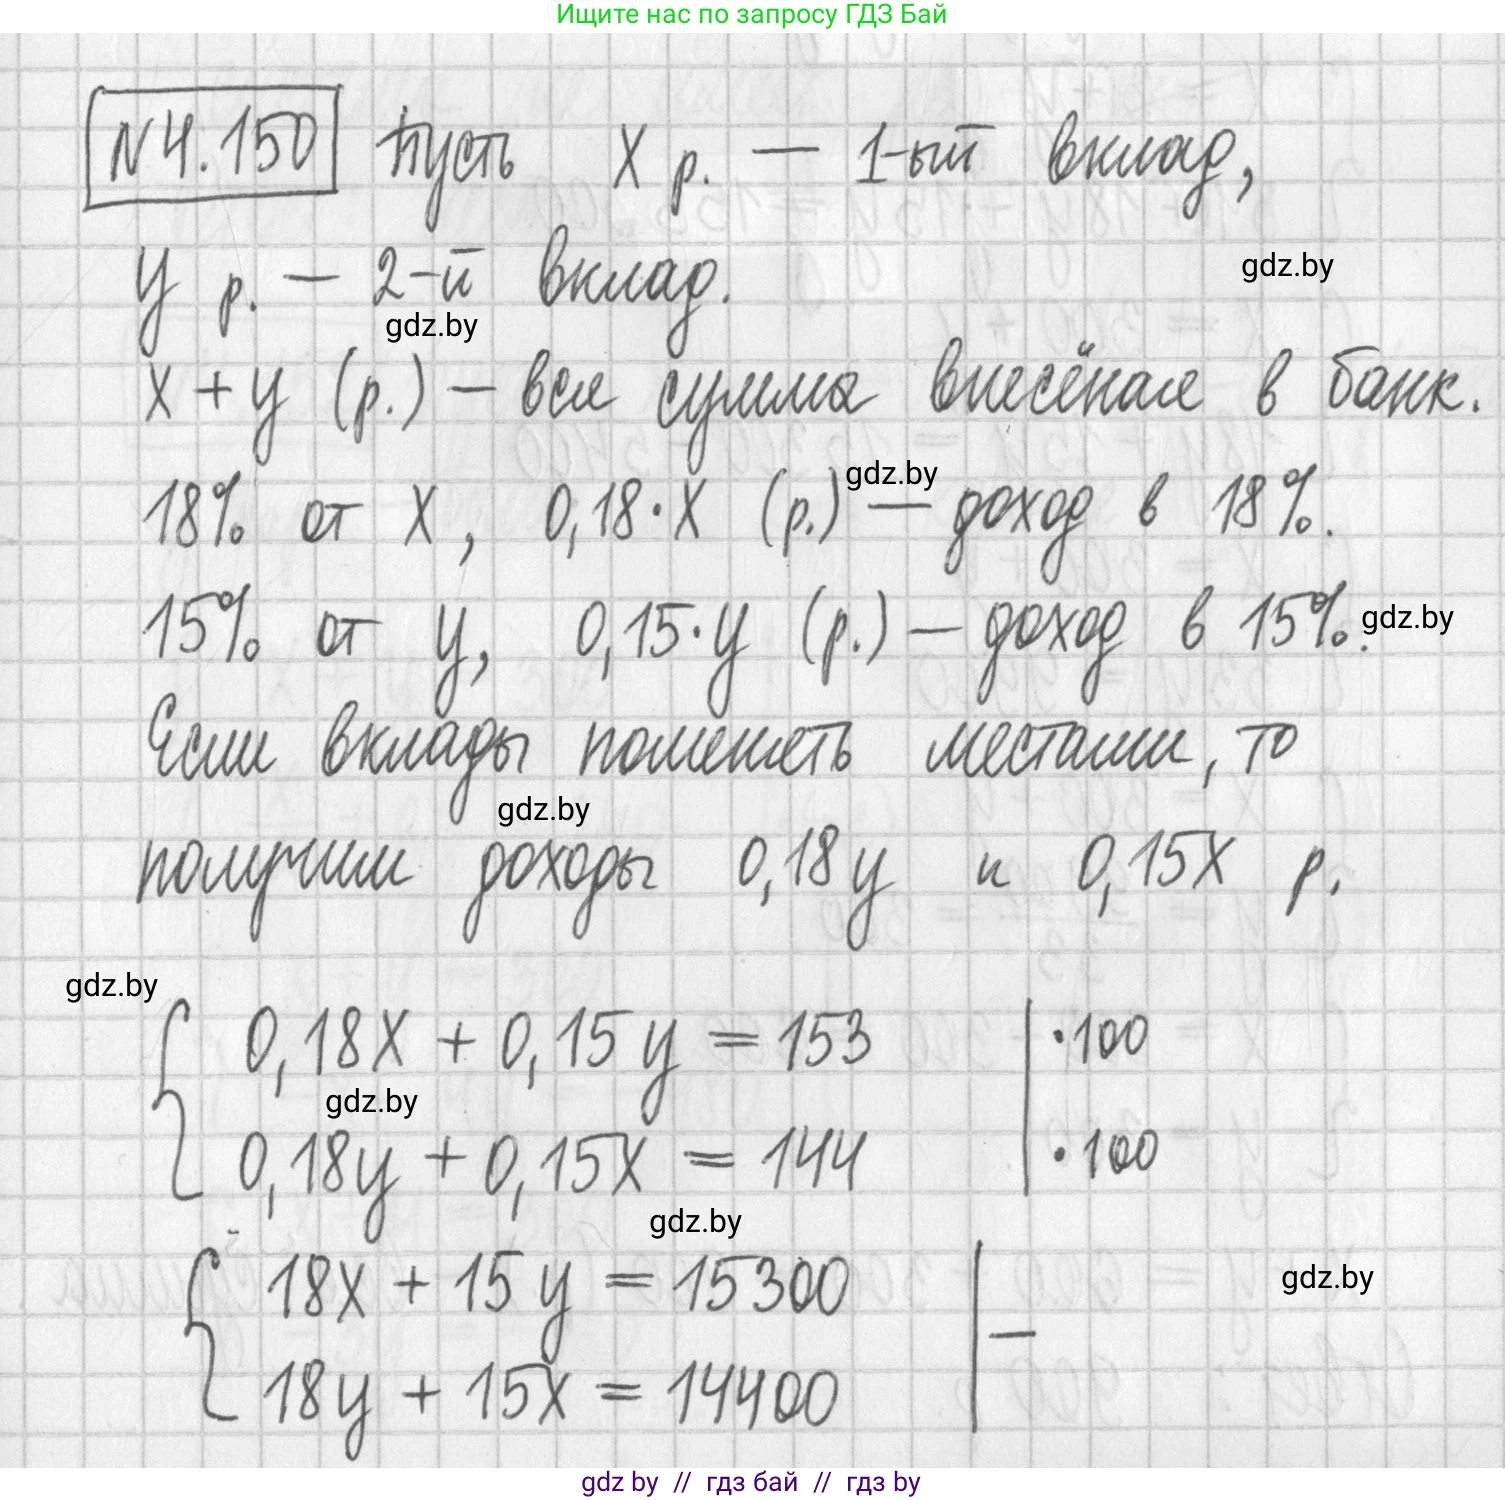 Ищите нас по запросу ГДЗ Бай
N 4.150 Пусть x р. — 1-ый вклад,
gdz.by
y р. — 2-й вклад.
gdz.by
x + y (р.) — вся сумма внесёная в банк.
gdz.by
18% от x, 0,18·x (р.) — доход в 18%.
15% от y, 0,15·y (р.) — доход в 15%.
gdz.by
Если вклады поменять местами, то
gdz.by
получим доходы 0,18y и 0,15x р.
gdz.by
{ 0,18x + 0,15y = 153 | ·100
gdz.by
0,18y + 0,15x = 144 | ·100
gdz.by
{ 18x + 15y = 15300 | −
gdz.by
18y + 15x = 14400
gdz by // гдз бай // гдз by